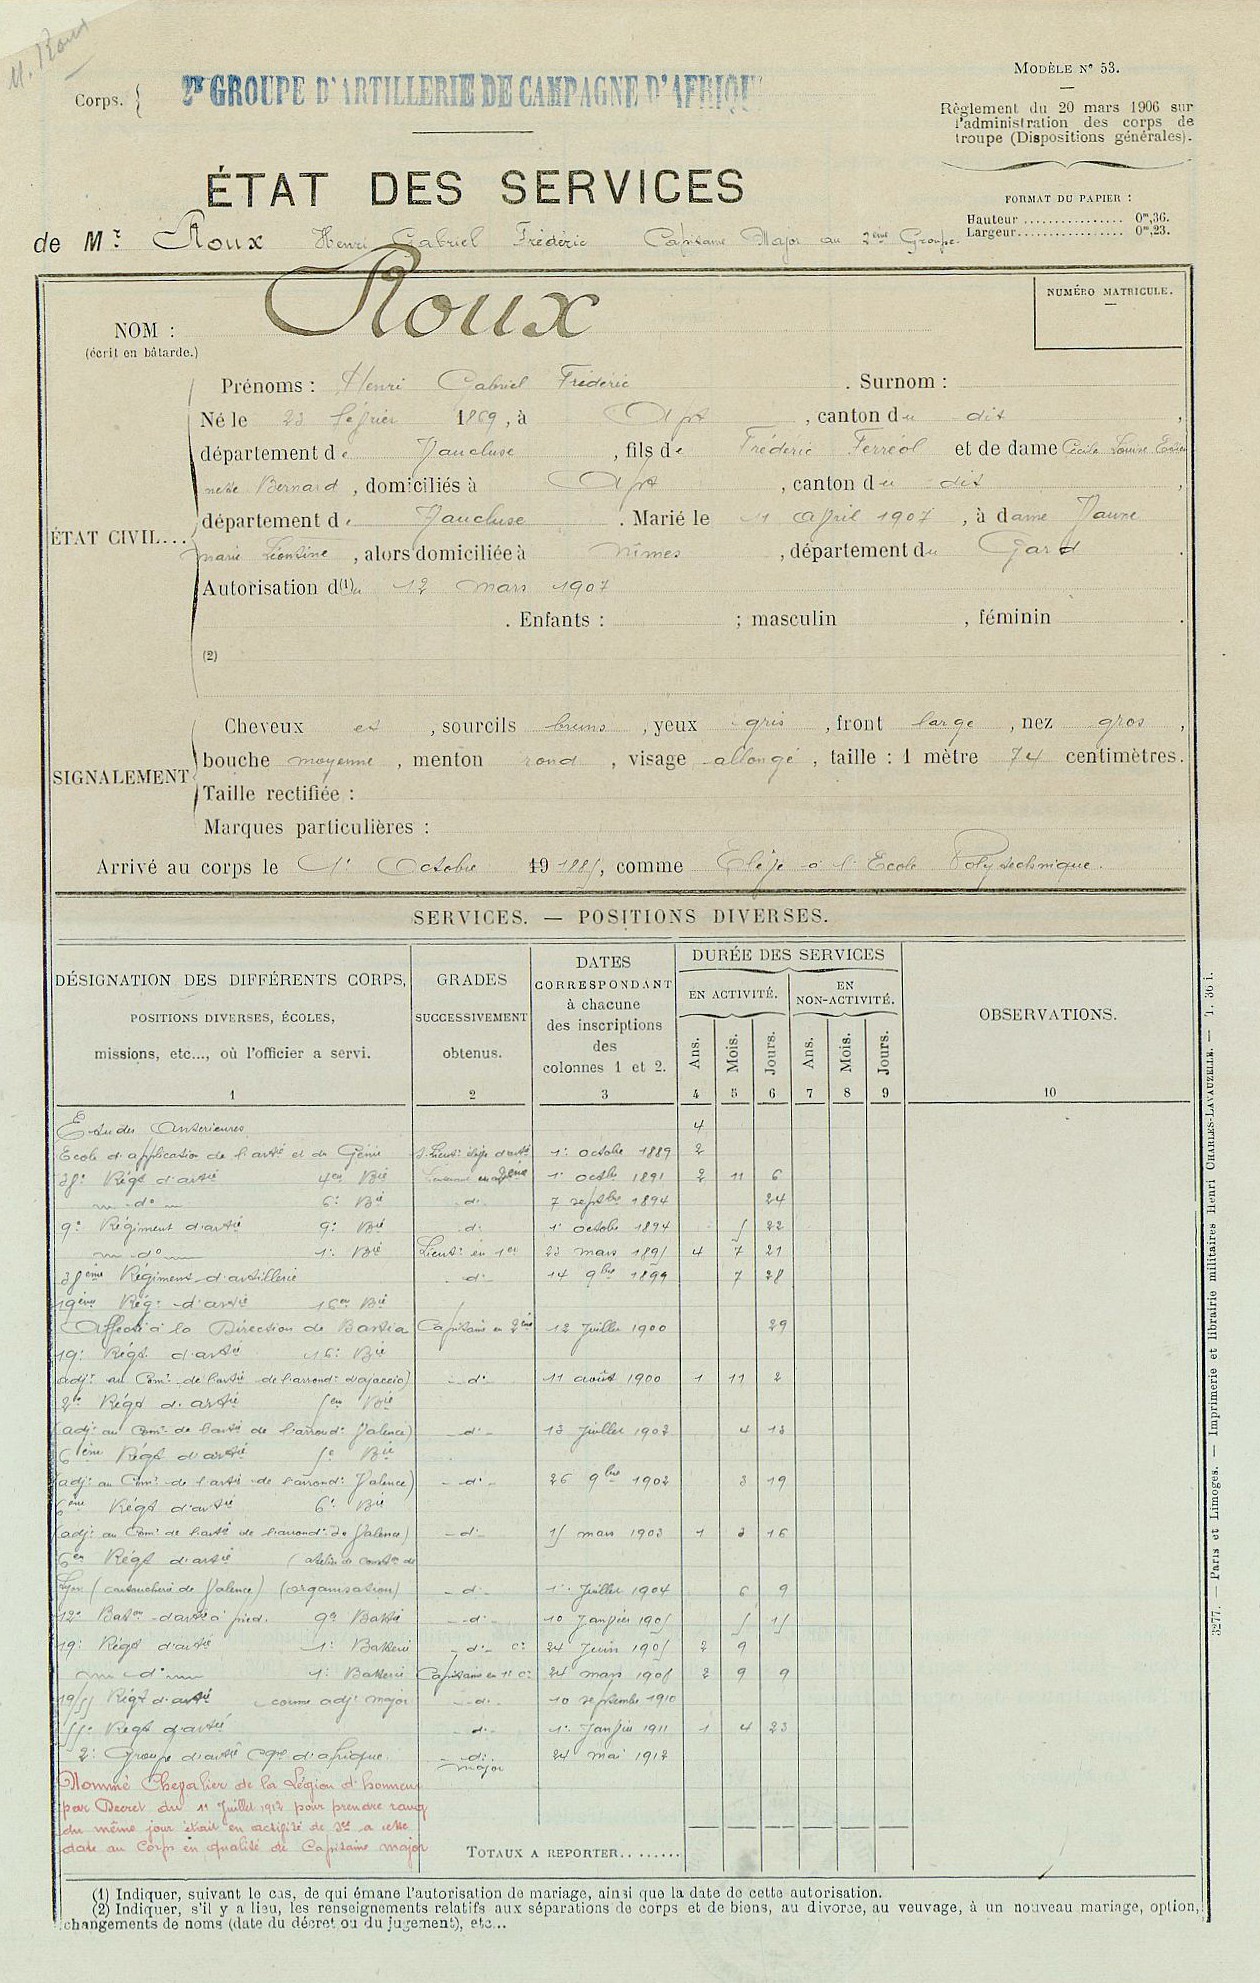 M. Roux
Corps. { 2e GROUPE D'ARTILLERIE DE CAMPAGNE D'AFRIQUE
MODÈLE N° 53.
Règlement du 20 mars 1906 sur
l'administration des corps de
troupe (Dispositions générales).
FORMAT DU PAPIER :
Hauteur ............... 0m,36.
Largeur................. 0m,23.
ÉTAT DES SERVICES
de Mr Roux Henri Gabriel Frédéric Capitaine Major au 2ème Groupe.
NUMÉRO MATRICULE.
NOM : Roux
(écrit en bâtarde.)
Prénoms : Henri Gabriel Frédéric . Surnom :
Né le 23 février 1869, à Apt , canton du dit ,
département de Vaucluse , fils de Frédéric Ferréol et de dame Cécile Louise
Bernard , domiciliés à Apt , canton du dit ,
ÉTAT CIVIL...
département de Vaucluse . Marié le 11 avril 1907 , à dame Jaune
marie Léontine , alors domiciliée à nîmes , département du Gard .
Autorisation d(1)u 12 mars 1907
. Enfants : ; masculin , féminin .
(2)
SIGNALEMENT
Cheveux et , sourcils bruns , yeux gris , front large , nez gros ,
bouche moyenne , menton rond , visage allongé , taille : 1 mètre 74 centimètres.
Taille rectifiée :
Marques particulières :
Arrivé au corps le 1r Octobre 19 1885, comme Elève à l'Ecole Polytechnique.
SERVICES. — POSITIONS DIVERSES.
DÉSIGNATION DES DIFFÉRENTS CORPS,
POSITIONS DIVERSES, ÉCOLES,
missions, etc..., où l'officier a servi.
1
GRADES
SUCCESSIVEMENT
obtenus.
2
DATES
CORRESPONDANT
à chacune
des inscriptions
des
colonnes 1 et 2.
3
DURÉE DES SERVICES
EN ACTIVITÉ.
EN
NON-ACTIVITÉ.
Ans. Mois. Jours. Ans. Mois. Jours.
4 5 6 7 8 9
OBSERVATIONS.
10
Etudes Anterieures 4
Ecole d'application de l'artie et du Génie s. Lieut. élève d'artie 1r octobre 1889 2
38e Régt d'artie 4e Bie Lieutenant en 2ème 1r octbre 1891 2 11 6
d° 6e Bie d° 7 septbre 1894 24
9e Régiment d'artie 9e Bie d° 1r octobre 1894 5 22
d° 1e Bie Lieut. en 1er 23 mars 1895 4 7 21
38ème Régiment d'artillerie d° 14 9bre 1899 7 28
19ème Rég. d'artie 16e Bie
Affecté à la Direction de Bastia Capitaine en 2ème 12 Juillet 1900 29
19e Régt d'artie 16e Bie
(adjt au Comt de l'artie de l'arrondt d'ajaccio) d° 11 août 1900 1 11 2
2e Régt d'artie 5e Bie
(adjt au Comt de l'artie de l'arrondt Valence) d° 13 Juillet 1902 4 13
6ème Régt d'artie 5e Bie
(adjt au Comt de l'artie de l'arrondt Valence) d° 26 9bre 1902 3 19
6ème Régt d'artie 6e Bie
(adjt au Comt de l'artie de l'arrondt de Valence) d° 15 mars 1903 1 3 16
6e Régt d'artie (atelier de conston de
Lyon (cartoucherie de Valence) (organisation) d° 1r Juillet 1904 6 9
12e Baton d'artie à pied. 9e Battie d° 10 Janvier 1905 5 15
19e Régt d'artie 1e Batterie d° 24 Juin 1905 2 9
d° 1e Batterie Capitaine en 1r 24 mars 1908 2 9 9
19/55 Régt d'artie comme adjt major d° 10 septembre 1910
55e Régt d'artie d° 1r Janvier 1911 1 4 23
2e Groupe d'artie d'afrique. d° major 24 mai 1912
Nommé Chevalier de la Légion d'honneur
par Decret du 11 Juillet 1912 pour prendre rang
du même jour était en activité de sce a cette
date au Corps en qualité de Capitaine major
TOTAUX A REPORTER........
(1) Indiquer, suivant le cas, de qui émane l'autorisation de mariage, ainsi que la date de cette autorisation.
(2) Indiquer, s'il y a lieu, les renseignements relatifs aux séparations de corps et de biens, au divorce, au veuvage, à un nouveau mariage, option,
changements de noms (date du décret ou du jugement), etc...
3277. — Paris et Limoges. — Imprimerie et librairie militaires Henri CHARLES-LAVAUZELLE. — T. 36 i.